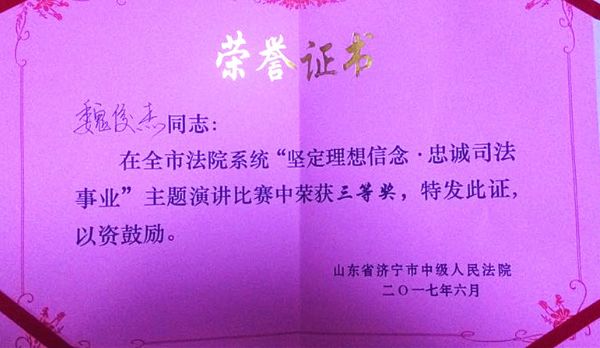 荣誉证书
魏俊杰同志：
在全市法院系统“坚定理想信念·忠诚司法
事业”主题演讲比赛中荣获三等奖，特发此证，
以资鼓励。
山东省济宁市中级人民法院
二〇一七年六月